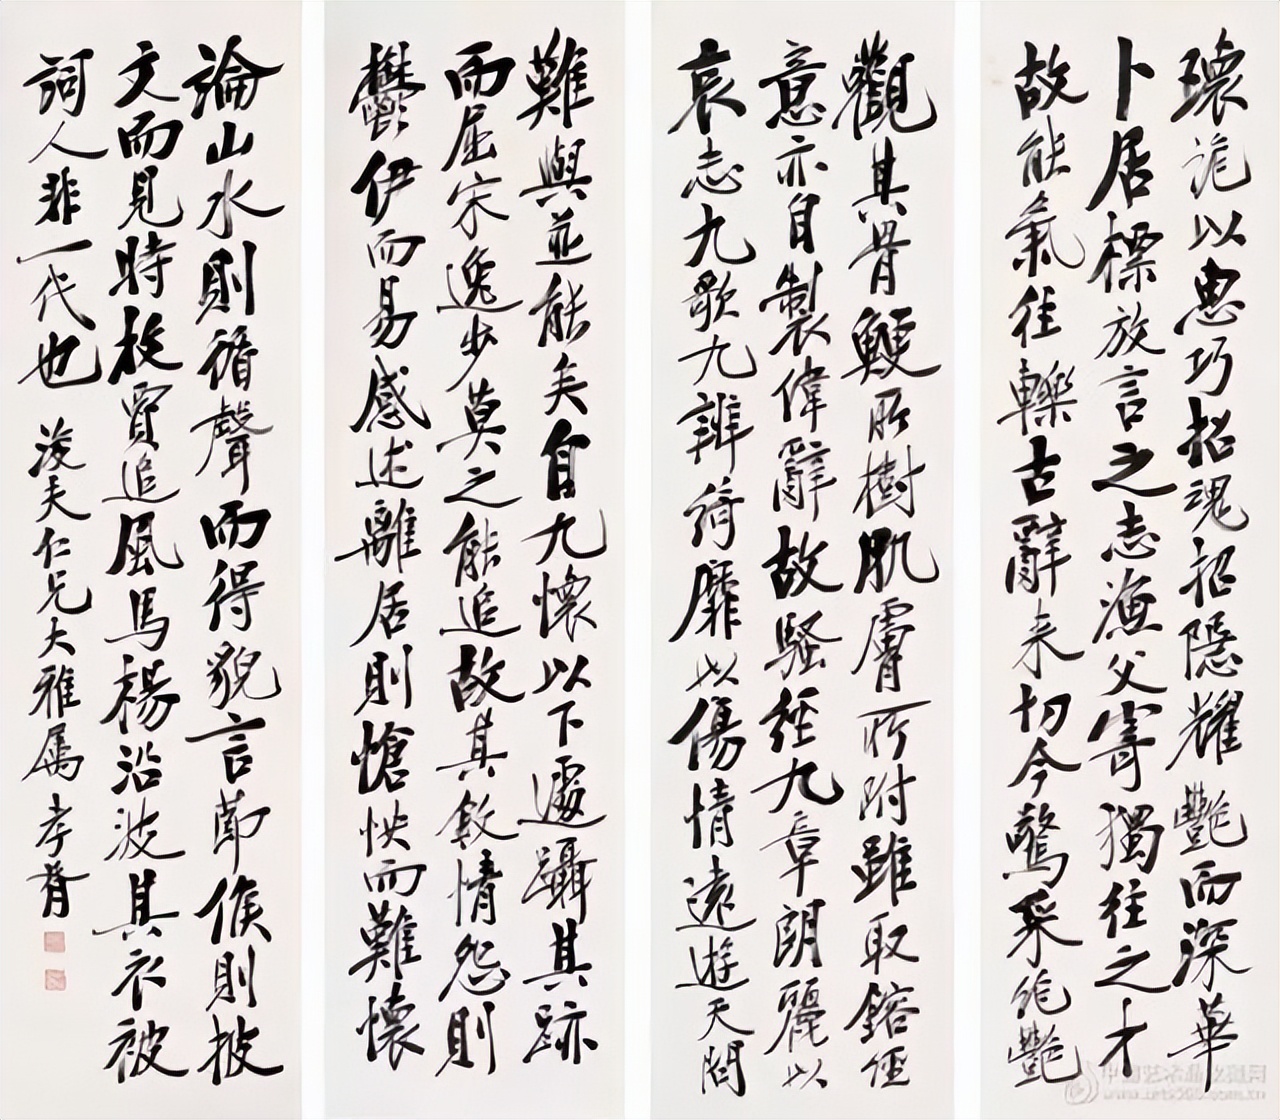 瓌詭以惠巧招魂招隱耀艷而深華
卜居標放言之志漁父寄獨往之才
故能氣往轢古辭来切今驚采絕艷
觀其骨鯁所樹肌膚所附雖取鎔經
意亦自製偉辭故騷經九章朗麗以
哀志九歌九辯綺靡以傷情遠遊天問
難與並能矣自九懷以下遽躡其跡
而屈宋逸步莫之能追故其敘情怨則
鬱伊而易感述離居則愴怏而難懷
論山水則循聲而得貌言節候則披
文而見時枚賈追風馬楊沿波其衣被
詞人非一代也 浚夫仁兄大雅属 孝胥